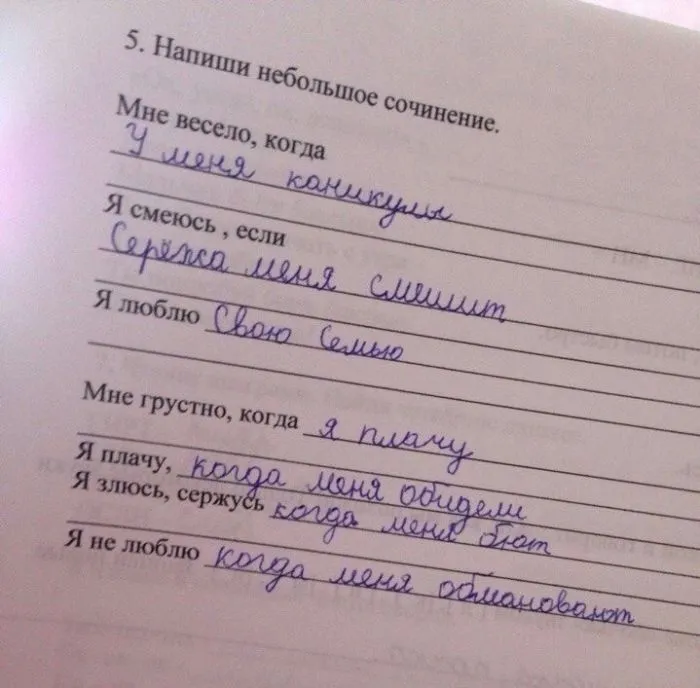 5. Напиши небольшое сочинение.
Мне весело, когда
У меня каникулы
Я смеюсь , если
Серёжа меня смешит
Я люблю Свою Семью
Мне грустно, когда я плачу
Я плачу, когда меня обидели
Я злюсь, сержусь когда меня бют
Я не люблю когда меня обмановают